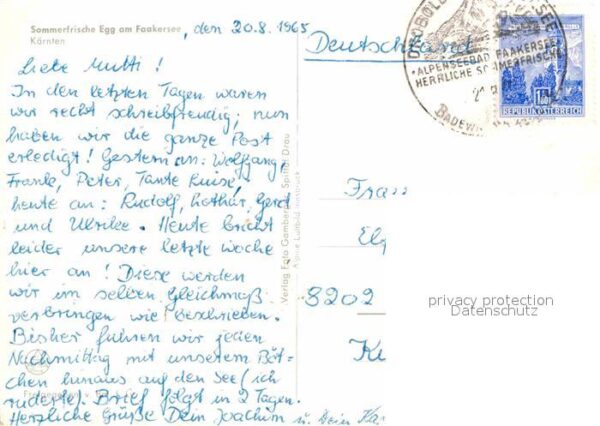 Sommerfrische Egg am Faakersee, den 20.8.1965
Kärnten
Deutschland
Liebe Mutti!
In den letzten Tagen waren
wir recht schreibfreudig; nun
haben wir die ganze Post
erledigt! Gestern an: Wolfgang,
Frank, Peter, Tante Luise,
heute an: Rudolf, Lothar, Gerd
und Ulrike. Heute bricht
leider unsere letzte Woche
hier an! Diese werden
wir im selben Gleichmaß
verbringen wie beschrieben.
Bisher fuhren wir jeden
Nachmittag mit unserem Böt-
chen hinaus auf den See (ich
ruderte). Brief folgt in 2 Tagen.
Herzliche Grüße Dein Joachim u. Dein
Verlag Foto Gamberger, Spittal Drau
Alpine Luftbild Innsbruck
ALPENSEEBAD FAAKERSEE
HERRLICHE SOMMERFRISCHE
REPUBLIK ÖSTERREICH
Frau
8202
privacy protection
Datenschutz